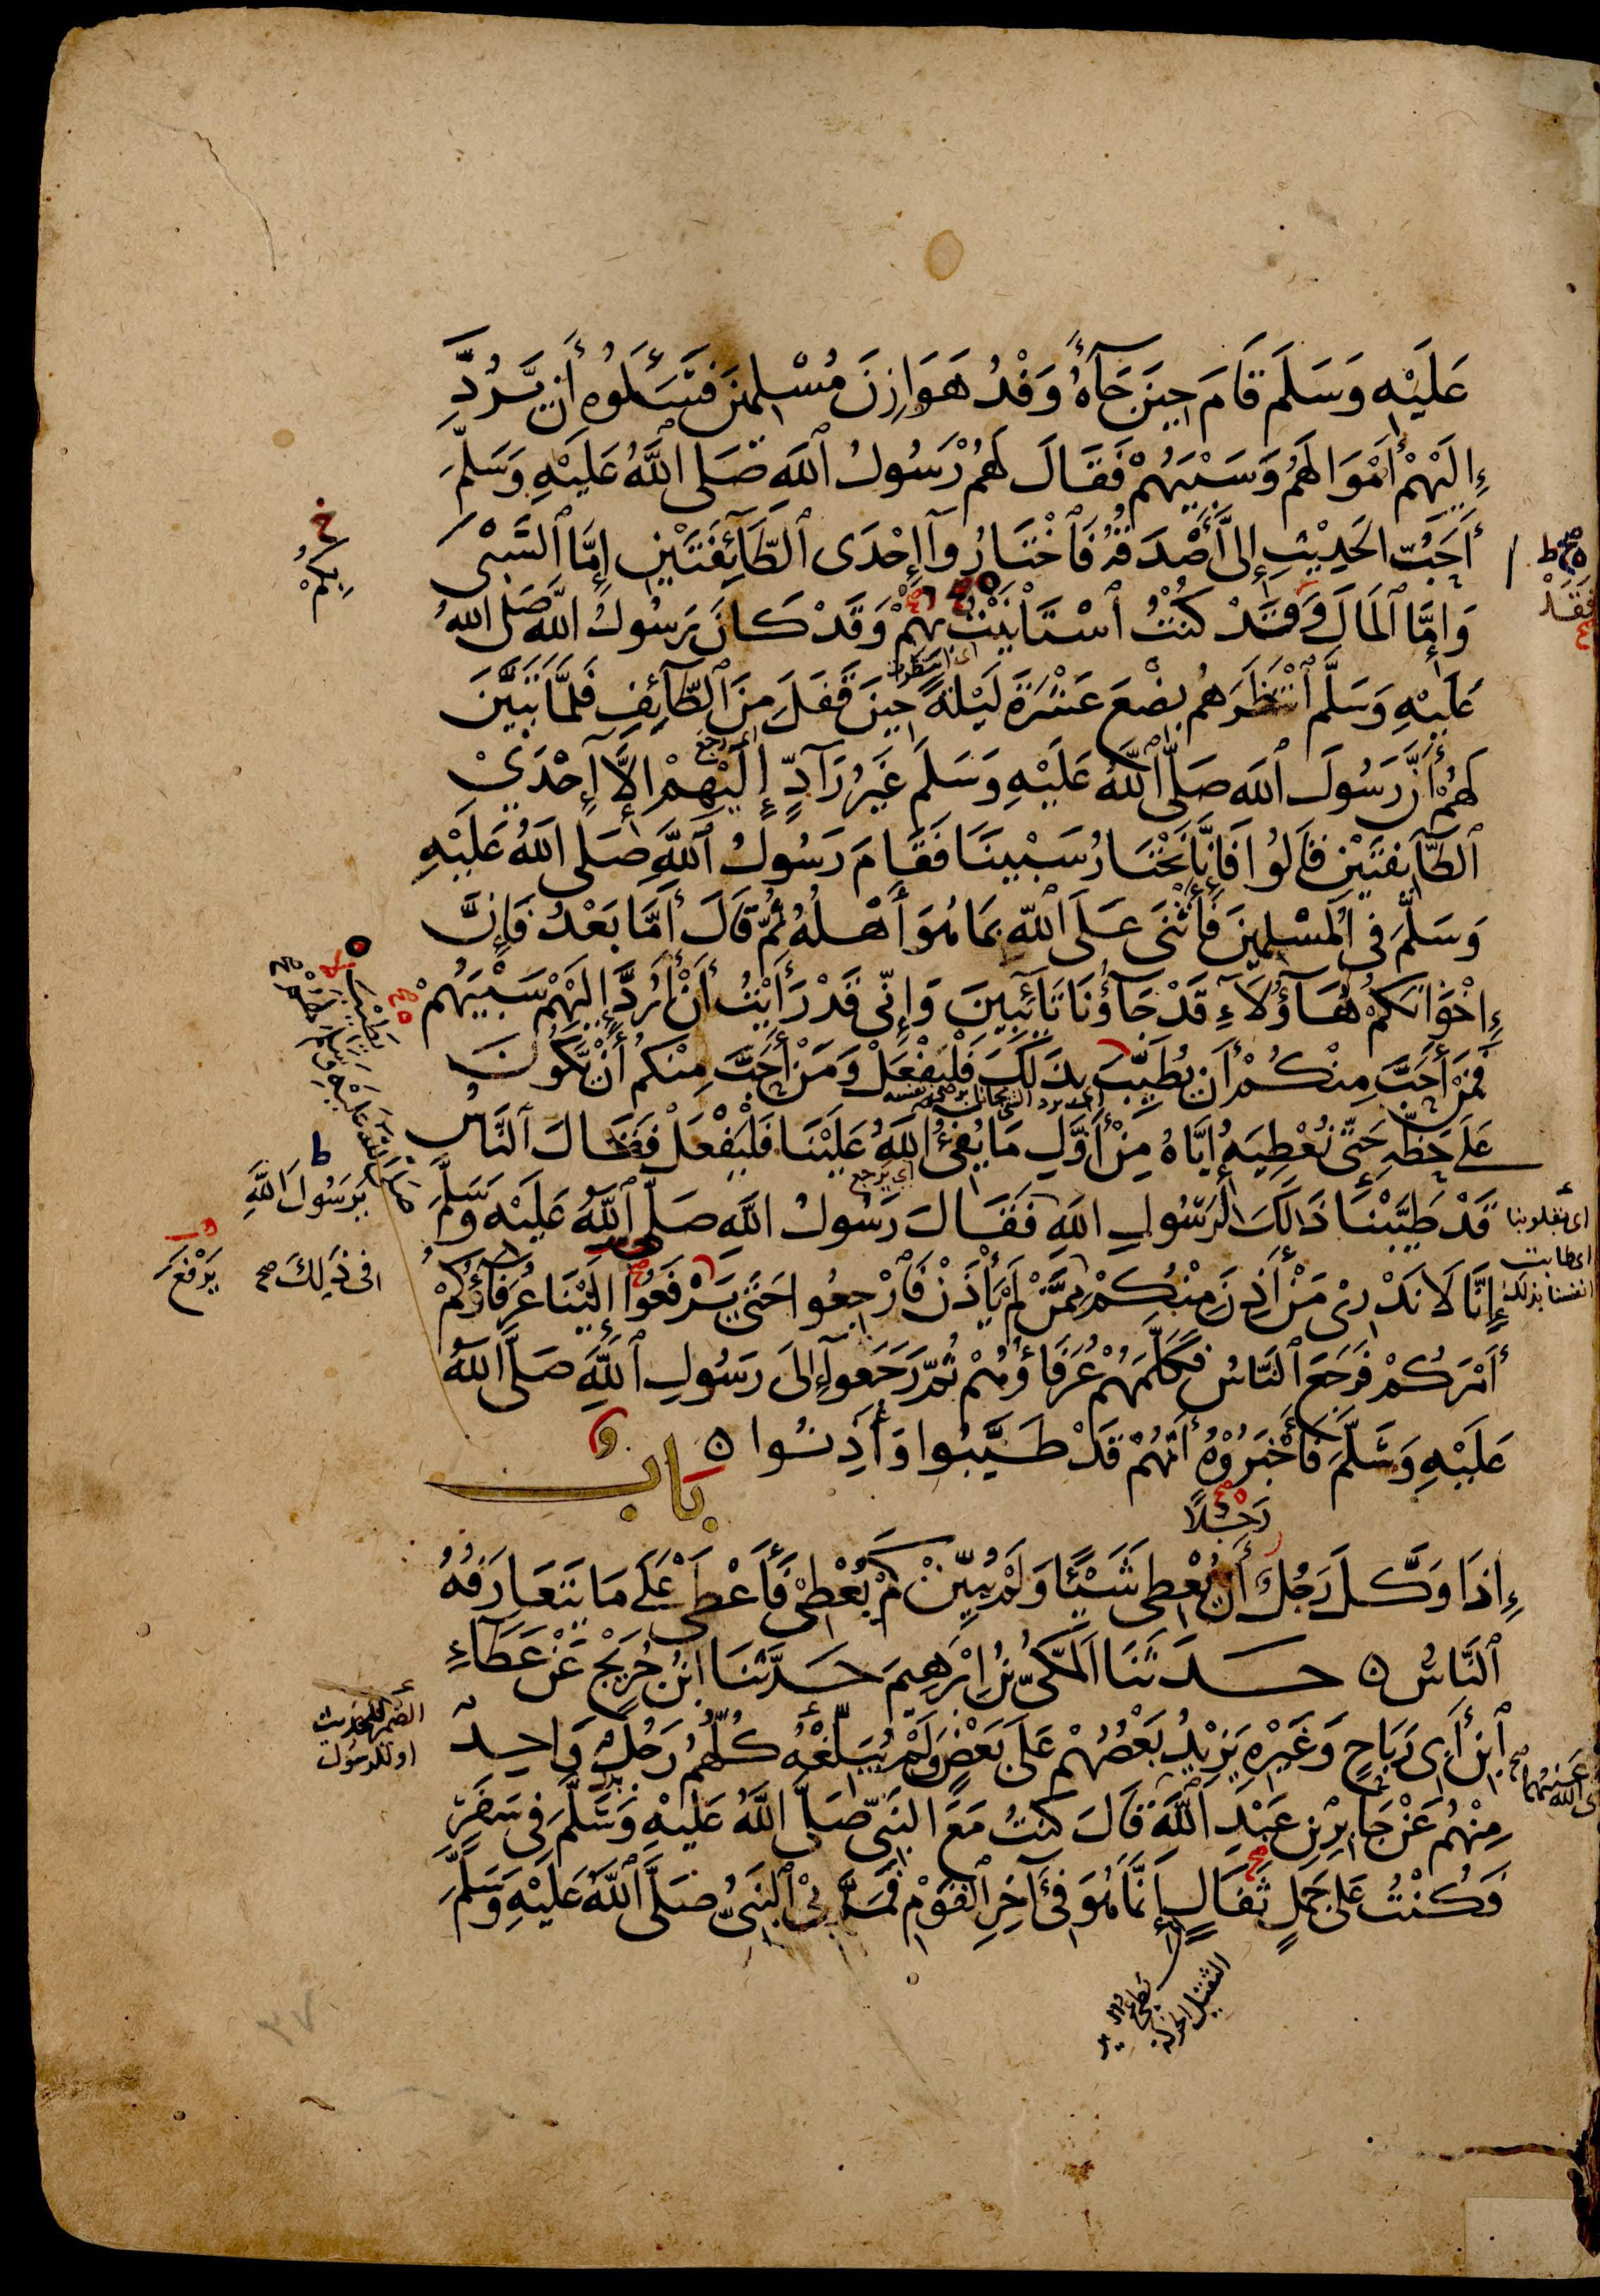 عَلَيْهِ وَسَلَّمَ قَامَ حِينَ جَآءَهُ وَفْدُ هَوَازِنَ مُسْلِمِينَ فَسَأَلُوهُ أَن يَّرُدَّ
إِلَيْهِمْ أَمْوَالَهُمْ وَسَبْيَهُمْ فَقَالَ لَهُمْ رَسُولُ اللَّهِ صَلَّى اللَّهُ عَلَيْهِ وَسَلَّمَ
أَحَبُّ الْحَدِيْثِ إِلَىَّ أَصْدَقُهُ فَاخْتَارُوآ إِحْدَى الطَّآئِفَتَيْنِ إِمَّا السَّبْىَ
وَإِمَّا الْمَالَ وَقَدْ كُنْتُ اسْتَأْنَيْتُ بِهِمْ وَقَدْ كَانَ رَسُولُ اللَّهِ صَلَّى اللَّهُ
فَقَدْ
بِكُمْ
عَلَيْهِ وَسَلَّمَ انْتَظَرَهُمْ بِضْعَ عَشْرَةَ لَيْلَةً حِينَ قَفَلَ مِنَ الطَّآئِفِ فَلَمَّا تَبَيَّنَ
اى انتظرت
اى رجع
لَهُمْ أَنَّ رَسُولَ اللَّهِ صَلَّى اللَّهُ عَلَيْهِ وَسَلَّمَ غَيْرُ رَآدٍّ إِلَيْهِمْ إِلَّا إِحْدَىْ
الطَّآئِفَتَيْنِ قَالُوا فَإِنَّا نَخْتَارُ سَبْيَنَا فَقَامَ رَسُولُ اللَّهِ صَلَّى اللَّهُ عَلَيْهِ
وَسَلَّمَ فِى الْمُسْلِمِينَ فَأَثْنَى عَلَى اللَّهِ بِمَا هُوَ أَهْلُهُ ثُمَّ قَالَ أَمَّا بَعْدُ فَإِنَّ
إِخْوَانَكُمْ هَآؤُلَآءِ قَدْ جَآؤُنَا تَآئِبِينَ وَإِنِّى قَدْ رَأَيْتُ أَنْ أَرُدَّ إِلَيْهِمْ سَبْيَهُمْ
فَمَنْ أَحَبَّ مِنْكُمْ أَنْ يُطَيِّبَ بِذَلِكَ فَلْيَفْعَلْ وَمَنْ أَحَبَّ مِنْكُمْ أَنْ يَّكُونَ
عَلَى حَظِّهِ حَتَّى نُعْطِيَهُ إِيَّاهُ مِنْ أَوَّلِ مَا يُفِىءُ اللَّهُ عَلَيْنَا فَلْيَفْعَلْ فَقَالَ النَّاسُ
اى يرجع
قَدْ طَيَّبْنَا ذَالِكَ لِرَسُولِ اللَّهِ فَقَالَ رَسُولُ اللَّهِ صَلَّى اللَّهُ عَلَيْهِ وَسَلَّمَ
اى طابت
انفسنا بذلك
يَرَسُولَ اللَّهِ
إِنَّا لَا نَدْرِىْ مَنْ أَذِنَ مِنْكُمْ مِمَّنْ لَمْ يَأْذَنْ فَارْجِعُوا حَتَّى يَرْفَعُوا إِلَيْنَا عُرَفَآؤُكُمْ
فى ذَلِكَ صح
يَرْفَعَ
أَمْرَكُمْ فَرَجَعَ النَّاسُ فَكَلَّمَهُمْ عُرَفَاؤُهُمْ ثُمَّ رَجَعُوآ إِلَى رَسُولِ اللَّهِ صَلَّى اللَّهُ
عَلَيْهِ وَسَلَّمَ فَأَخْبَرُوْهُ أَنَّهُمْ قَدْ طَيَّبُوا وَأَذِنُوا
باب
رَجُلًا
إِذَا وَكَّلَ رَجُلٌ أَنْ يُعْطِىَ شَيْئًا وَلَمْ يُبَيِّنْ كَمْ يُعْطِىْ فَأَعْطَى عَلَى مَا يَتَعَارَفُهُ
النَّاسُ حَدَّثَنَا الْمَكِّىُّ بْنُ إِبْرَهِيمَ حَدَّثَنَا ابْنُ جُرَيْجٍ عَنْ عَطَاءِ
ابْنِ أَبِى رَبَاحٍ وَغَيْرِهِ يَزِيْدُ بَعْضُهُمْ عَلَى بَعْضٍ وَلَمْ يُبَلِّغْهُ كُلُّهُمْ رَجُلٌ وَاحِدٌ
الضمير للحديث
او للرسول
مِنْهُمْ عَنْ جَابِرِ بْنِ عَبْدِ اللَّهِ قَالَ كُنْتُ مَعَ النَّبِىِّ صَلَّى اللَّهُ عَلَيْهِ وَسَلَّمَ فِى سَفَرٍ
فَكُنْتُ عَلَى جَمَلٍ ثَفَالٍ إِنَّمَا هُوَ فِى آخِرِ الْقَوْمِ فَمَرَّ بِىَ النَّبِىُّ صَلَّى اللَّهُ عَلَيْهِ وَسَلَّمَ